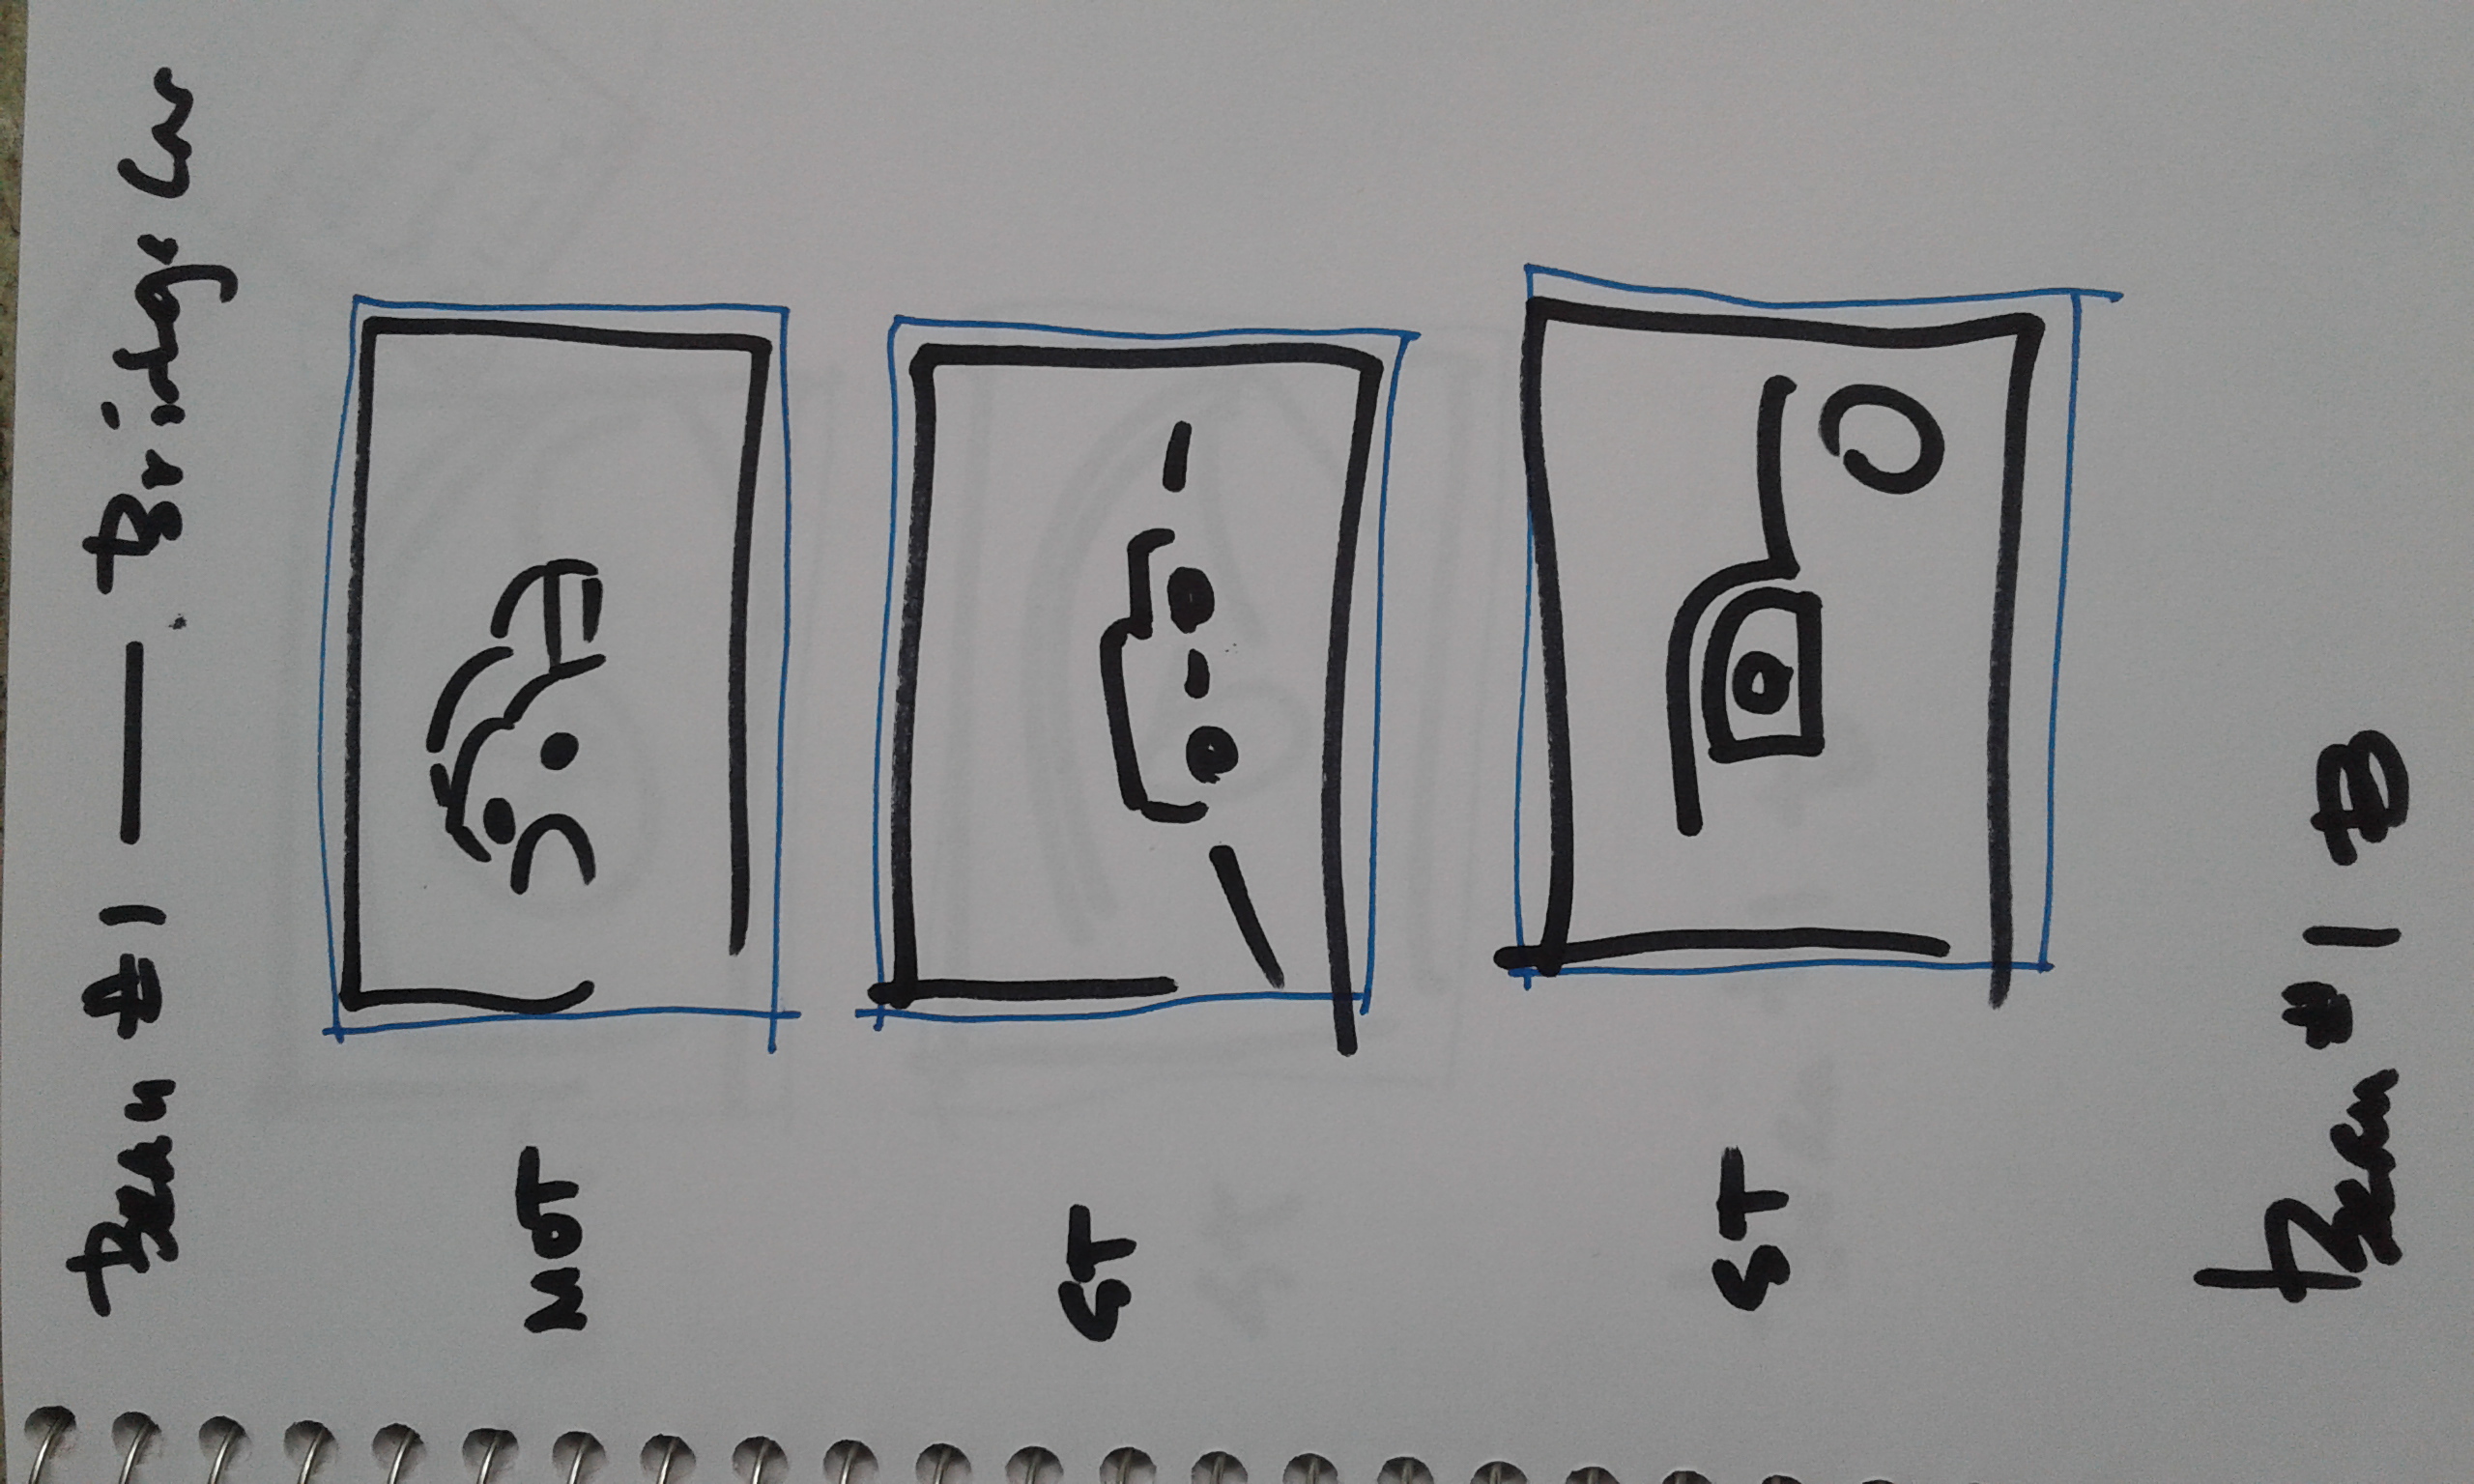 Bean #1 — Bridge Car
MOT
ST
ST
Bean #1 B